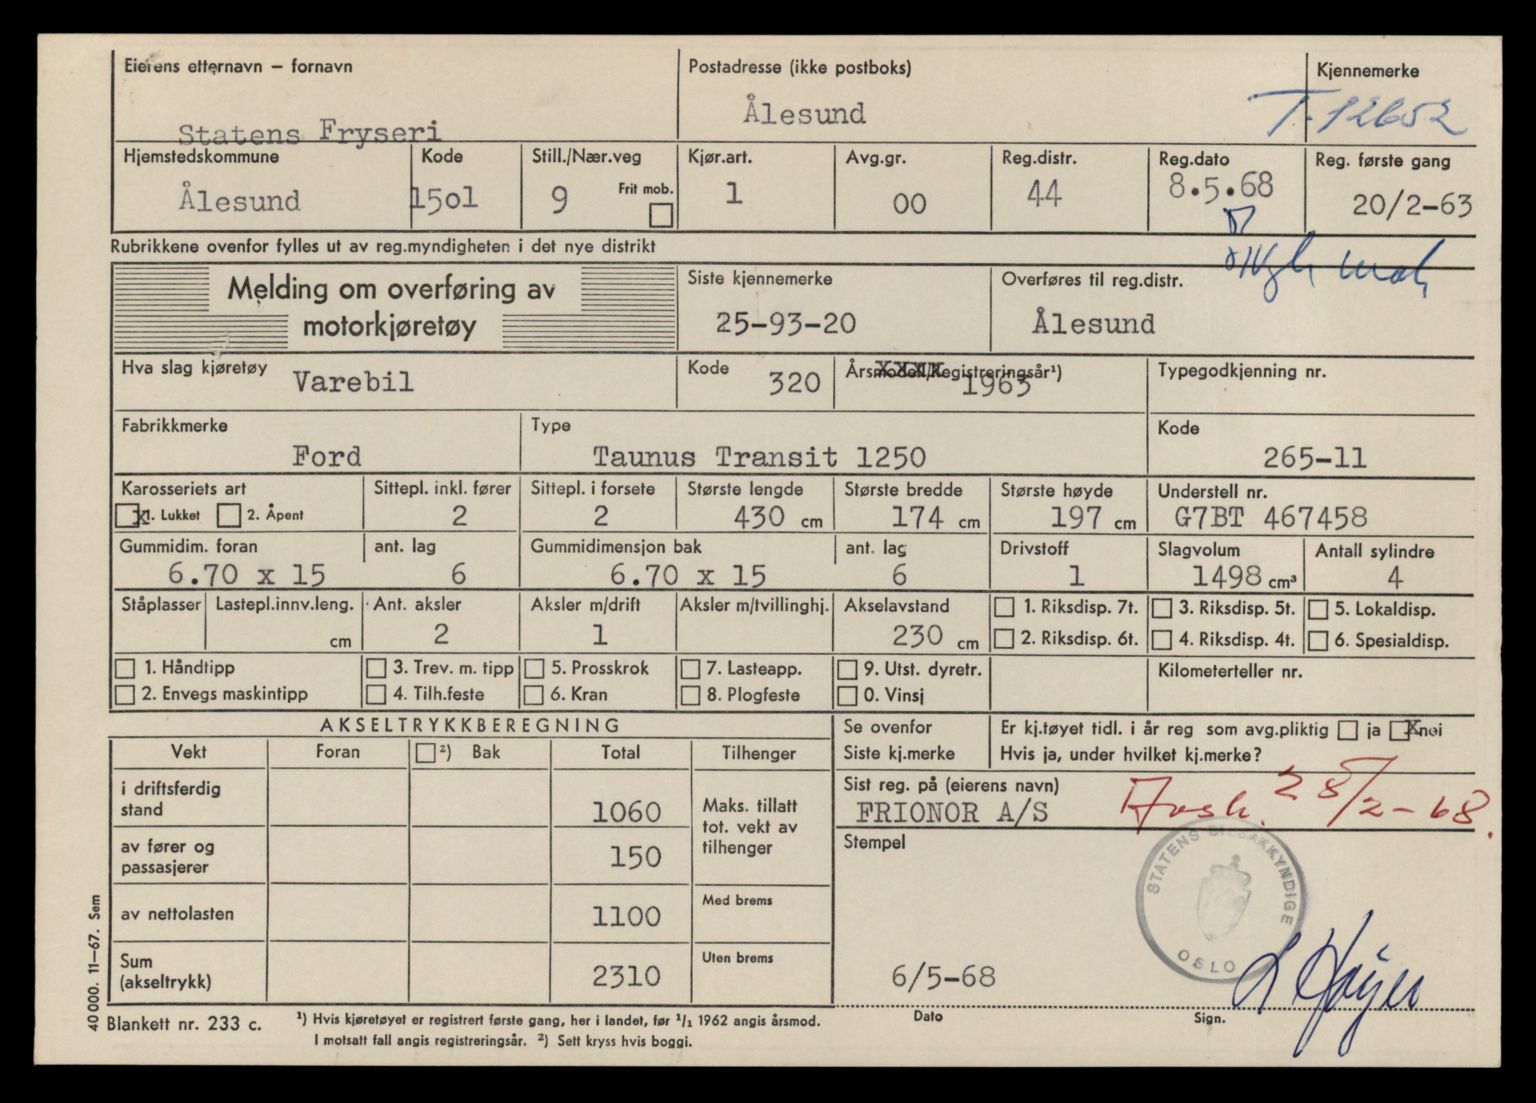 Eierens etternavn — fornavn
Statens Fryseri
Postadresse (ikke postboks)
Ålesund
Kjennemerke
T-12652
Hjemstedskommune
Ålesund
Kode
15o1
Still./Nær.veg
9
Frit mob.
Kjør.art.
1
Avg.gr.
00
Reg.distr.
44
Reg.dato
8.5.68
Reg. første gang
20/2-63
Rubrikkene ovenfor fylles ut av reg.myndigheten i det nye distrikt
Melding om overføring av
motorkjøretøy
Siste kjennemerke
25-93-20
Overføres til reg.distr.
Ålesund
Hva slag kjøretøy
Varebil
Kode
320
Årsmodell/Registreringsår¹)
1963
Typegodkjenning nr.
Fabrikkmerke
Ford
Type
Taunus Transit 1250
Kode
265-11
Karosseriets art
X 1. Lukket 2. Åpent
Sittepl. inkl. fører
2
Sittepl. i forsete
2
Største lengde
430 cm
Største bredde
174 cm
Største høyde
197 cm
Understell nr.
G7BT 467458
Gummidim. foran
6.70 x 15
ant. lag
6
Gummidimensjon bak
6.70 x 15
ant. lag
6
Drivstoff
1
Slagvolum
1498 cm³
Antall sylindre
4
Ståplasser
Lastepl.innv.leng.
cm
Ant. aksler
2
Aksler m/drift
1
Aksler m/tvillinghj.
Akselavstand
230 cm
1. Riksdisp. 7t.
2. Riksdisp. 6t.
3. Riksdisp. 5t.
4. Riksdisp. 4t.
5. Lokaldisp.
6. Spesialdisp.
1. Håndtipp
2. Envegs maskintipp
3. Trev. m. tipp
4. Tilh.feste
5. Prosskrok
6. Kran
7. Lasteapp.
8. Plogfeste
9. Utst. dyretr.
0. Vinsj
Kilometerteller nr.
AKSELTRYKKBEREGNING
Vekt Foran ²) Bak Total Tilhenger
i driftsferdig
stand
1060
av fører og
passasjerer
150
av nettolasten
1100
Sum
(akseltrykk)
2310
Maks. tillatt
tot. vekt av
tilhenger
Med brems
Uten brems
Se ovenfor
Siste kj.merke
Er kj.tøyet tidl. i år reg som avg.pliktig ja X nei
Hvis ja, under hvilket kj.merke?
Sist reg. på (eierens navn)
FRIONOR A/S
28/2-68.
Stempel
STATENS BILSAKKYNDIGE
OSLO
6/5-68
Dato
Sign.
40000. 11—67. Sem
Blankett nr. 233 c.
¹) Hvis kjøretøyet er registrert første gang, her i landet, før ¹/₁ 1962 angis årsmod.
I motsatt fall angis registreringsår. ²) Sett kryss hvis boggi.